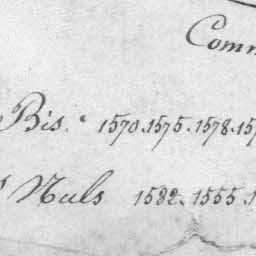 Comm
Bis. 1570. 1575. 1578. 15
Nuls 1582. 1555. 1